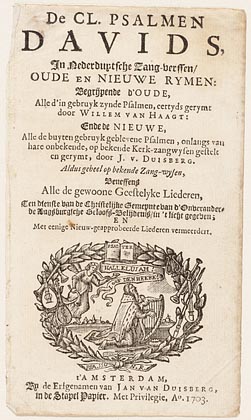 De CL. PSALMEN
DAVIDS,
In Nederduytsche Zang-verssen/
OUDE EN NIEUWE RYMEN:
Begrijpende d'OUDE,
Alle d'in gebruyk zynde Psalmen, eertyds gerymt
door WILLEM VAN HAAGT:
Ende de NIEUWE,
Alle de buyten gebruyk geblevene Psalmen, onlangs van
hare onbekende, op bekende Kerk-zangwysen gestelt
en gerymt, door J. v. DUISBERG.
Aldus geheel op bekende Zang-wysen,
Beneffens
Alle de gewoone Geestelyke Liederen,
Ten dienste van de Christelijke Gemeynte van d'Onverander-
de Augsburgsche Geloofs-Belijdenis/in 't licht gegeven;
EN
Met eenige Nieuw-geapprobeerde Liederen vermeerdert.
HALLELUJAH
DEN HEERE
t'AMSTERDAM,
By de Erfgenamen van JAN VAN DUISBERG,
in de Stapel Papier. Met Privilegie, Ao. 1703.